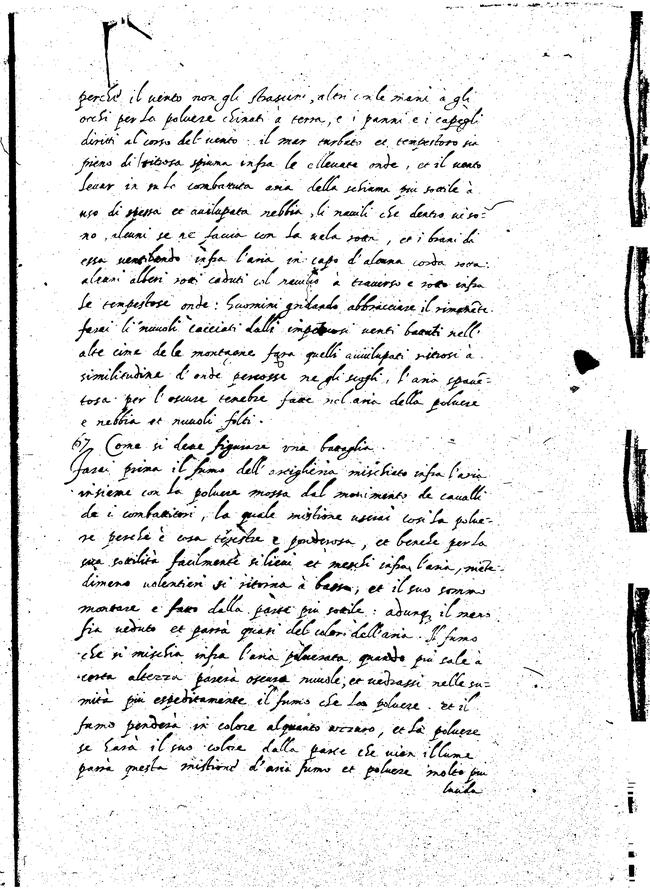 perche il vento non gli strascini, altri con le mani à gli
occhi per la poluere chinati à terra, e i panni e i capegli
diritti al corso del uento: il mar turbato et tempestoso sia
pieno di ritrosa spiuma infra le elleuate onde, et il uento
leuar in su la combattuta aria della schiuma più sottile à
uso di spessa et auilupata nebbia, li nauili che dentro ui so=
no, alcuni se ne faccia con la uela rotta, et i brani di
essa uentilando infra l'aria in capo d'alcuna corda rotta:
alcuni alberi rotti caduti col nauilio à trauerso e rotto infra
le tempestose onde: huomini gridando abbracciare il rimanēte.
farai li nuuoli cacciati dalli impetuosi uenti battuti nell'
alte cime de le montagne fara quelli auuilupati ritrosi a
similitudine d'onde percosse ne gli scogli, l'aria spauē-
tosa per l'oscure tenebre fatte nel aria della poluere
e nebbia et nuuoli folti.
67 Come si deue figurare vna battaglia.
Farai prima il fumo dell'artigheria mischiato infra l'aria
insieme con la poluere mossa dal mouimento de caualli
de i combattitori, la quale mistione userai cosi La polue-
re perche è cosa terrestre e ponderosa, et benche per la
sua sottilità facilmente si lieui et meschi infra l'aria, niēte-
dimeno volentieri si ritorna à basso, et il suo sommo
montare e fatto dalla parte più sottile: adunq, il meno
fia ueduto et parrà quasi del color dell'aria. Il fumo
che si mischia infra l'aria poluerata, quando più sale à
certa altezza parerà oscure nuuole, et uedrassi nelle su=
mità più espeditamente il fumo che La poluere. et il
fumo penderà in colore alquanto azzurro, et La poluere
se harà il suo colore dalla parte che vien il lume
parrà questa mistione d'aria fumo et poluere molto piu
lucida